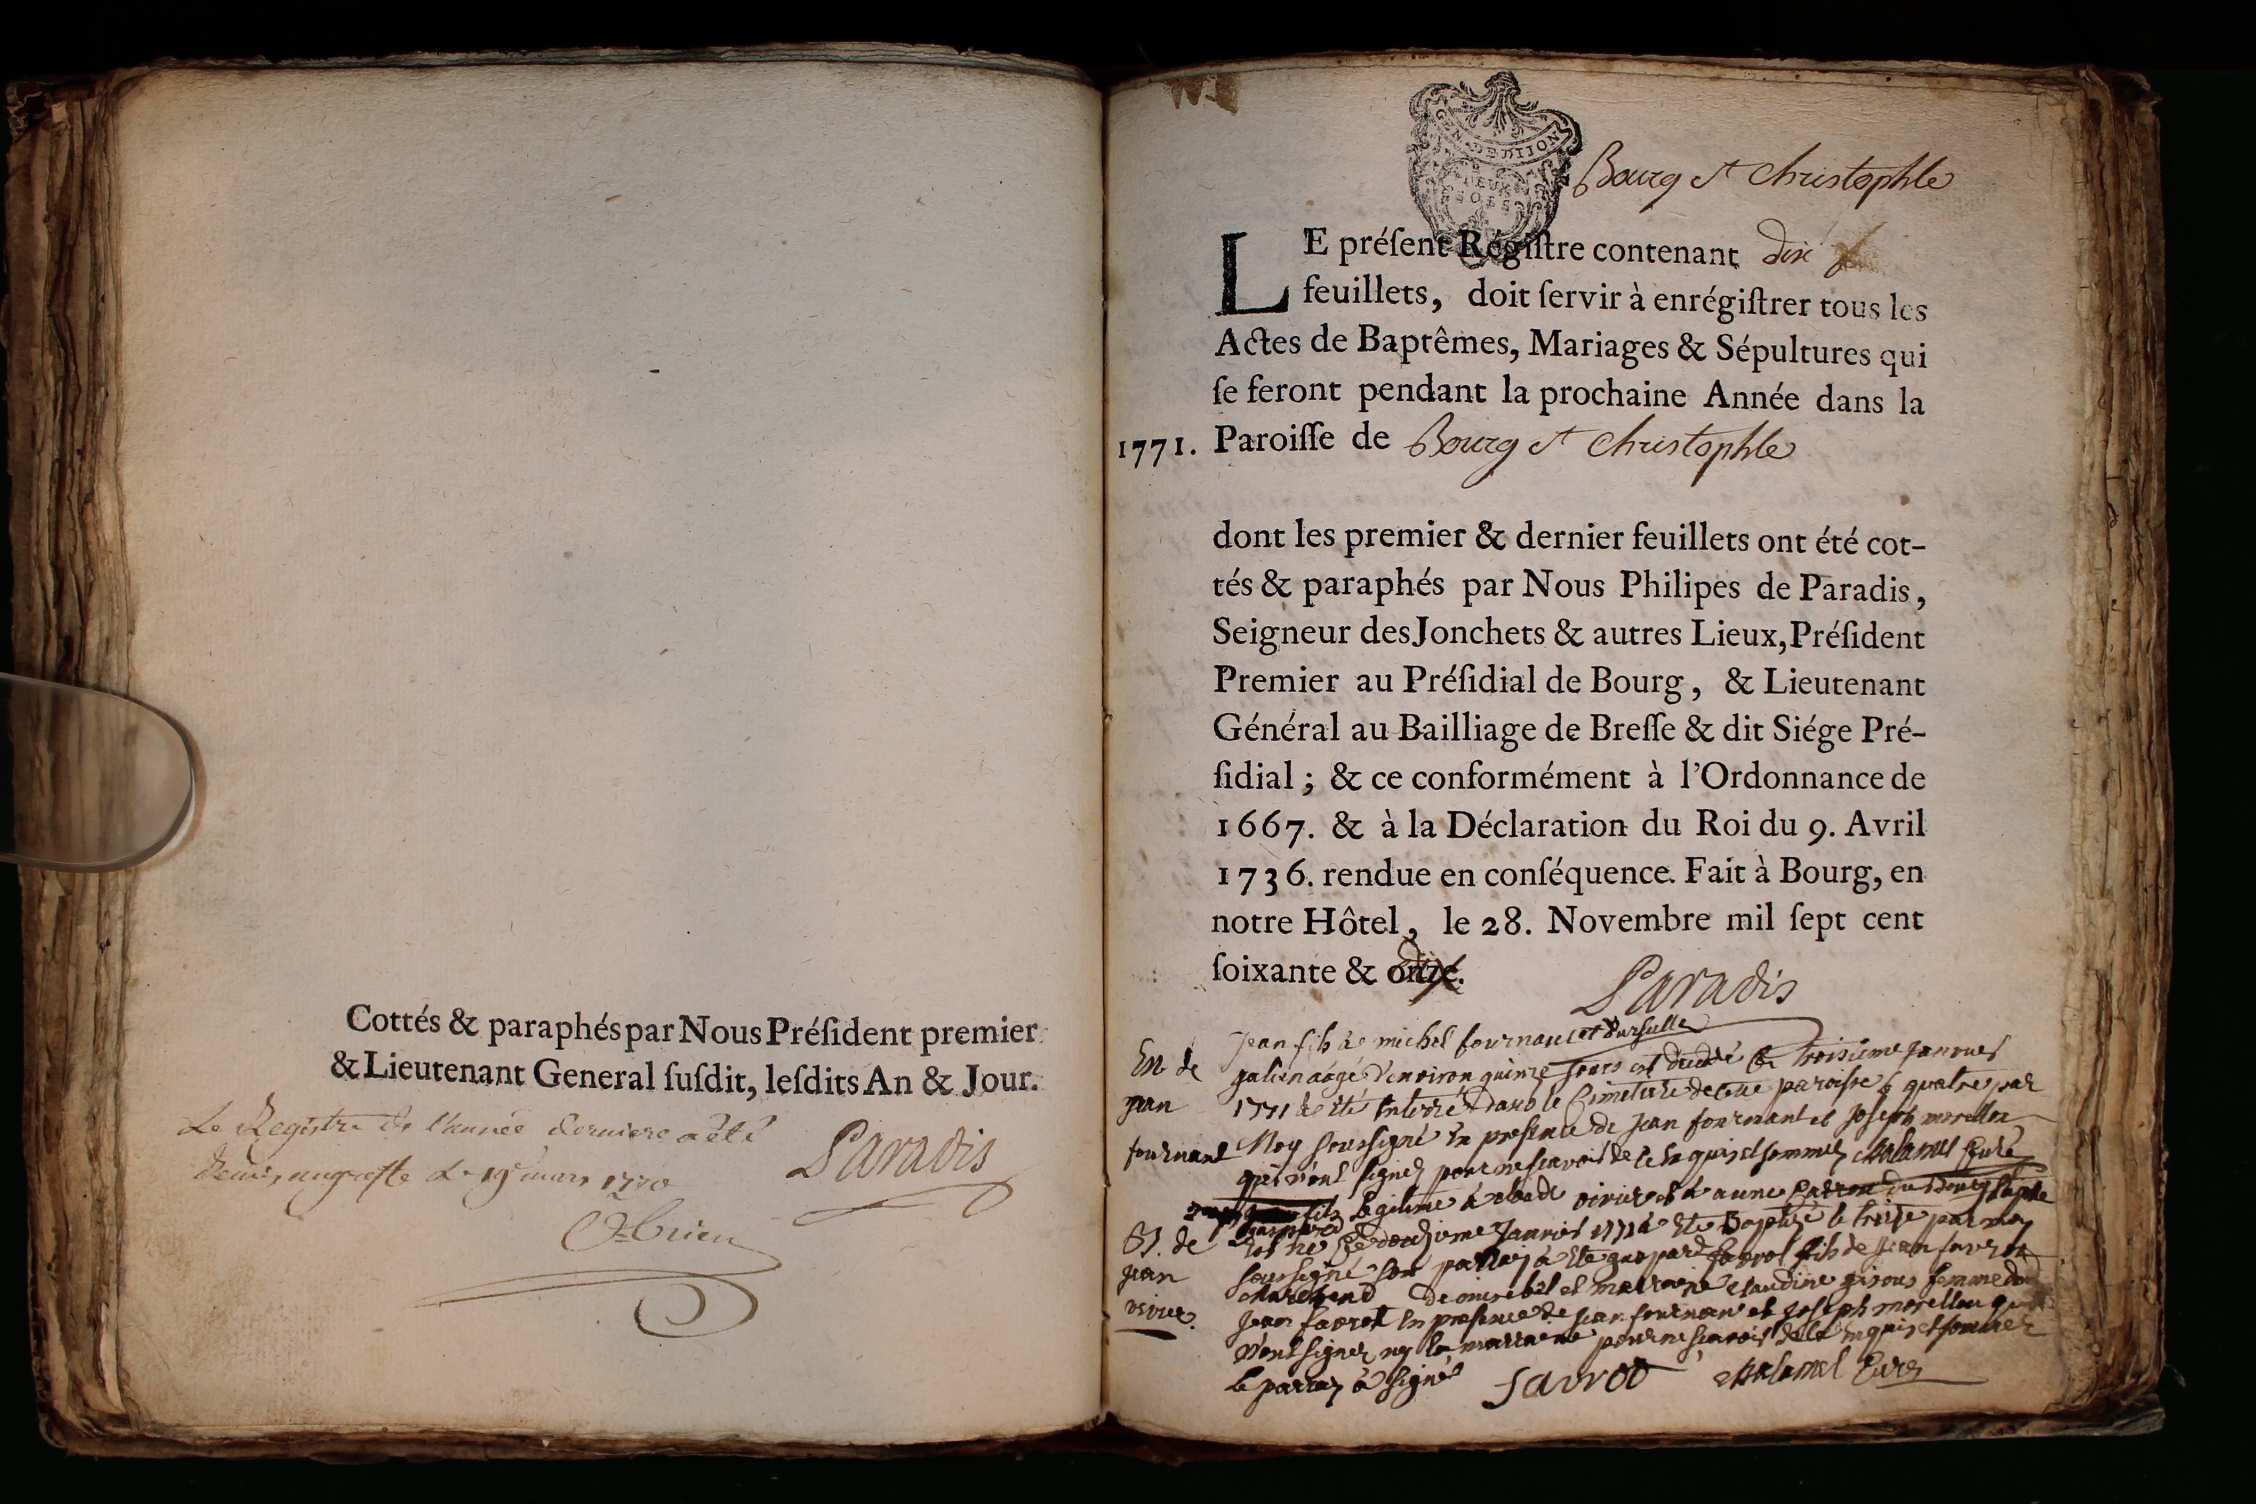 Cottés & paraphés par Nous Préſident premier
& Lieutenant General ſuſdit, leſdits An & Jour.
Le Registre de l'année derniere a été
Le 19e mars 1770
Paradis
GEN. DE DIJON
Bourg St Christophle
LE préſent Régiſtre contenant dix
feuillets, doit ſervir à enrégiſtrer tous les
Actes de Baptêmes, Mariages & Sépultures qui
ſe feront pendant la prochaine Année dans la
1771. Paroiſſe de Bourg St Christophle
dont les premier & dernier feuillets ont été cot-
tés & paraphés par Nous Philipes de Paradis,
Seigneur des Jonchets & autres Lieux, Préſident
Premier au Préſidial de Bourg, & Lieutenant
Général au Bailliage de Breſſe & dit Siége Pré-
ſidial ; & ce conformément à l'Ordonnance de
1667. & à la Déclaration du Roi du 9. Avril
1736. rendue en conſéquence. Fait à Bourg, en
notre Hôtel, le 28. Novembre mil ſept cent
ſoixante & onze.
Paradis
En. de
jean
fournant
jean fils de michel fournant et d'ursulle
galien aâgé d'environ quinze jours est decedé le troisieme janvier
1771 a été enterré dans le Cimetiere de cette paroisse le quatre par
Moy soussigné en presence de jean fournant et joseph morellon
qui n'ont signez pour ne scavoir de ce enquis et sommez Chalamel Curé
B. de
jean
vivier.
fils legitime à vivier et à
est né le douzieme janvier 1771 a été Baptizé le treize par moy
soussigné son parrain a été gaspard favrot fils de jean favrot
Marchand de mirebel et marraine Claudine girous femme dud
jean favrot en presence de jean fournant et joseph morellon qui
n'ont signez ny la marraine pour ne scavoir de ce enquis et sommez
le parrain a signé favrot Chalamel Curé